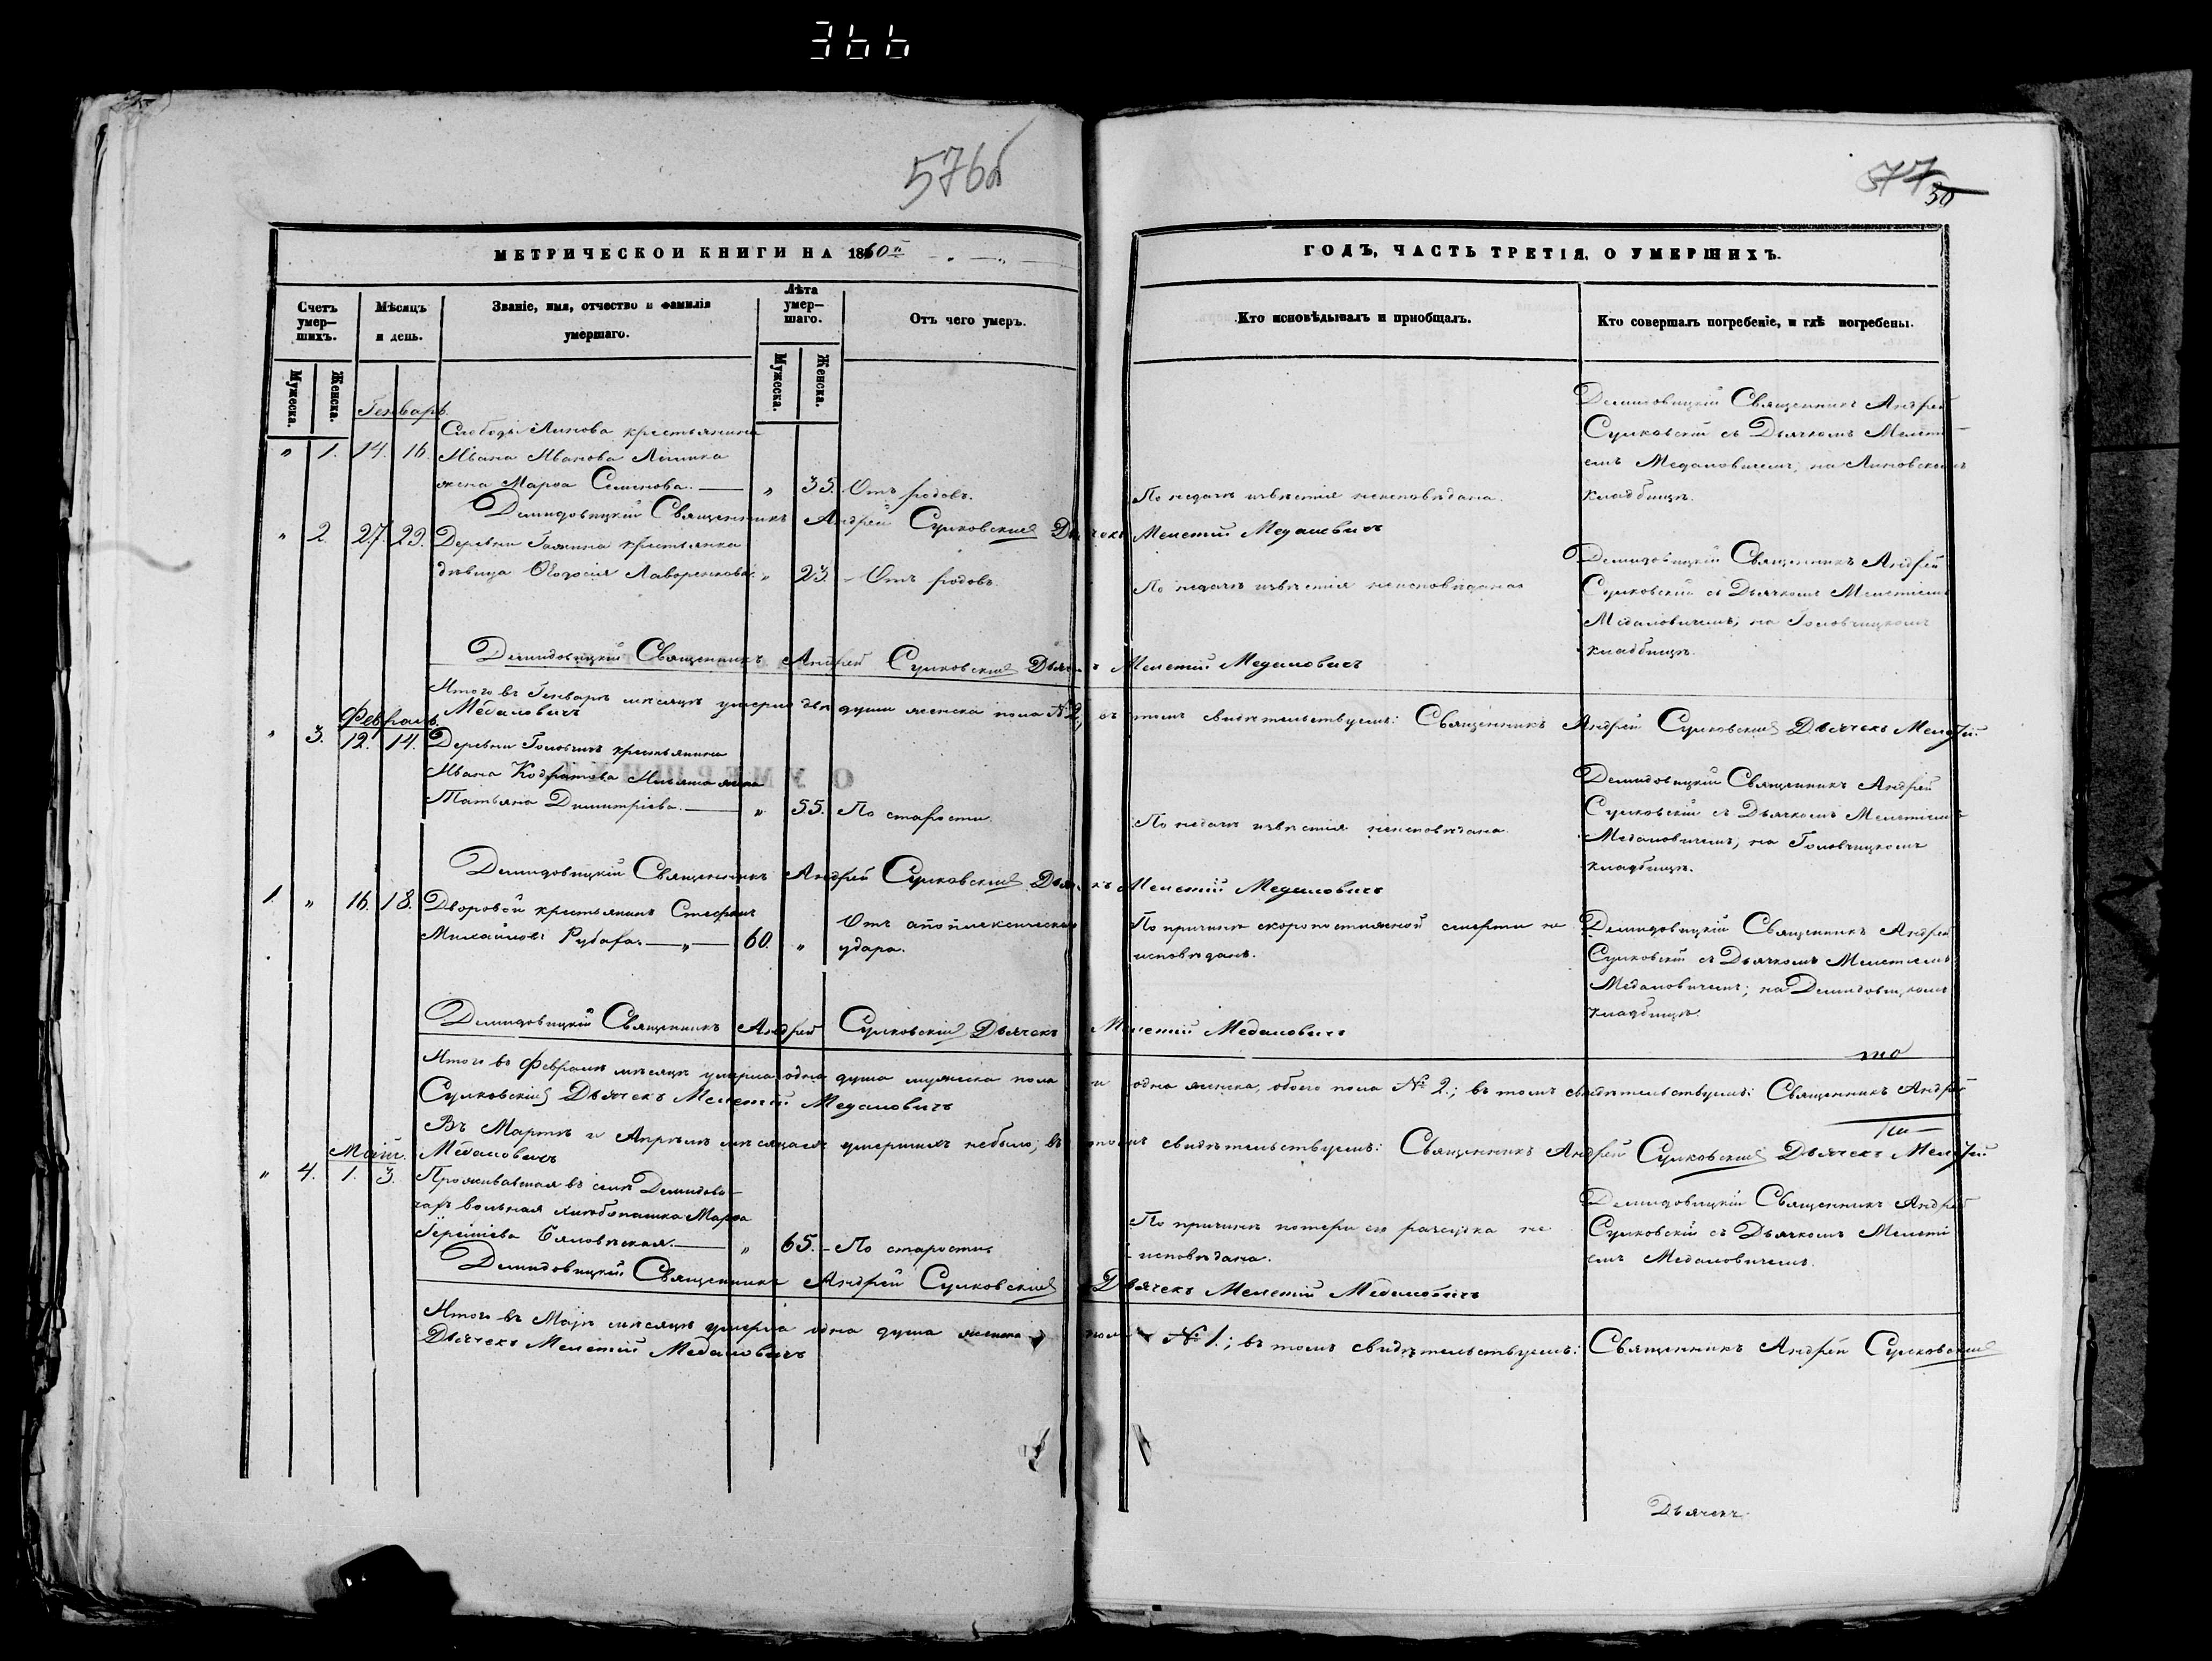 366
576б
577
30
МЕТРИЧЕСКОЙ КНИГИ НА 1860й
ГОДЪ, ЧАСТЬ ТРЕТІЯ, О УМЕРШИХЪ.
Счетъ умер—шихъ.
Мѣсяцъ и день.
Званіе, имя, отчество и фамилія умершаго.
Лѣта умер—шаго.
Отъ чего умеръ.
Кто исповѣдывалъ и пріобщалъ.
Кто совершалъ погребеніе, и гдѣ погребены.
Мужеска.
Женска.
Мужеска.
Женска.
Генварь.
" 1. 14. 16. Слободы Линова крестьянина
Ивана Иванова
жена Марѳа Семенова. — " 35. Отъ родовъ.
По недачѣ извѣстія неисповѣдана.
Демидовицкій Священникъ Андрей
Сулковскій съ Дьячкомъ Мелеті—
емъ Медаловичемъ, на Линовскомъ
кладбищѣ.
Демидовицкій Священникъ Андрей Сулковскій Дьячекъ Мелетій Медаловичъ
" 2. 27. 29. Деревни крестьянка
дѣвица Ѳеодосія Лаворенкова. " 23. — Отъ родовъ.
По недачѣ извѣстія неисповѣдана
Демидовицкій Священникъ Андрей
Сулковскій съ Дьячкомъ Мелетіемъ
Медаловичемъ, на Головчицкомъ
кладбищѣ.
Демидовицкій Священникъ Андрей Сулковскій Дьячекъ Мелетій Медаловичъ
Итого въ Генварѣ мѣсяцѣ умерло двѣ души женска пола № 2, въ томъ свидѣтельствуемъ: Священникъ Андрей Сулковскій Дьячекъ Мелетій
Медаловичъ
Февраль.
" 3. 12. 14. Деревни Головчицъ крестьянина
Ивана Кодратова жена
Татьяна Димитріева. — " 55. По старости.
По недачѣ извѣстія неисповѣдана
Демидовицкій Священникъ Андрей
Сулковскій съ Дьячкомъ Мелетіемъ
Медаловичемъ, на Головчицкомъ
кладбищѣ.
Демидовицкій Священникъ Андрей Сулковскій Дьячекъ Мелетій Медаловичъ
1. " 16. 18. Дворовой крестьянинъ Стефанъ
Михайловъ — " — 60. " Отъ апоплексическаго
удара.
По причинѣ скоропостижной смерти не
исповѣданъ.
Демидовицкій Священникъ Андрей
Сулковскій съ Дьячкомъ Мелетіемъ
Медаловичемъ; на Демидовицкомъ
кладбищѣ.
Демидовицкій Священникъ Андрей Сулковскій Дьячекъ Мелетій Медаловичъ
Итого въ Февралѣ мѣсяцѣ умерла одна душа мужеска пола и одна женска, обоего пола № 2.; въ томъ свидѣтельствуемъ: Священникъ Андрей
Сулковскій Дьячекъ Мелетій Медаловичъ
Въ Мартѣ и Апрѣлѣ мѣсяцахъ умершихъ небыло; въ томъ свидѣтельствуемъ: Священникъ Андрей Сулковскій Дьячекъ Мелетій
Медаловичъ
Маій.
" 4. 1. 3. Проживавшая въ селѣ Демидови—
чахъ вольная хлѣбопашка Марѳа
— " 65. — По старости
По причинѣ потери ею разсудка не
исповѣдана.
Демидовицкій Священникъ Андрей
Сулковскій съ Дьячкомъ Мелеті
емъ Медаловичемъ.
Демидовицкій Священникъ Андрей Сулковскій Дьячекъ Мелетій Медаловичъ
Итого въ Маѣ мѣсяцѣ умерла одна душа женска пола № 1.; въ томъ свидѣтельствуемъ: Священникъ Андрей Сулковскій
Дьячекъ Мелетій Медаловичъ
Дьячекъ